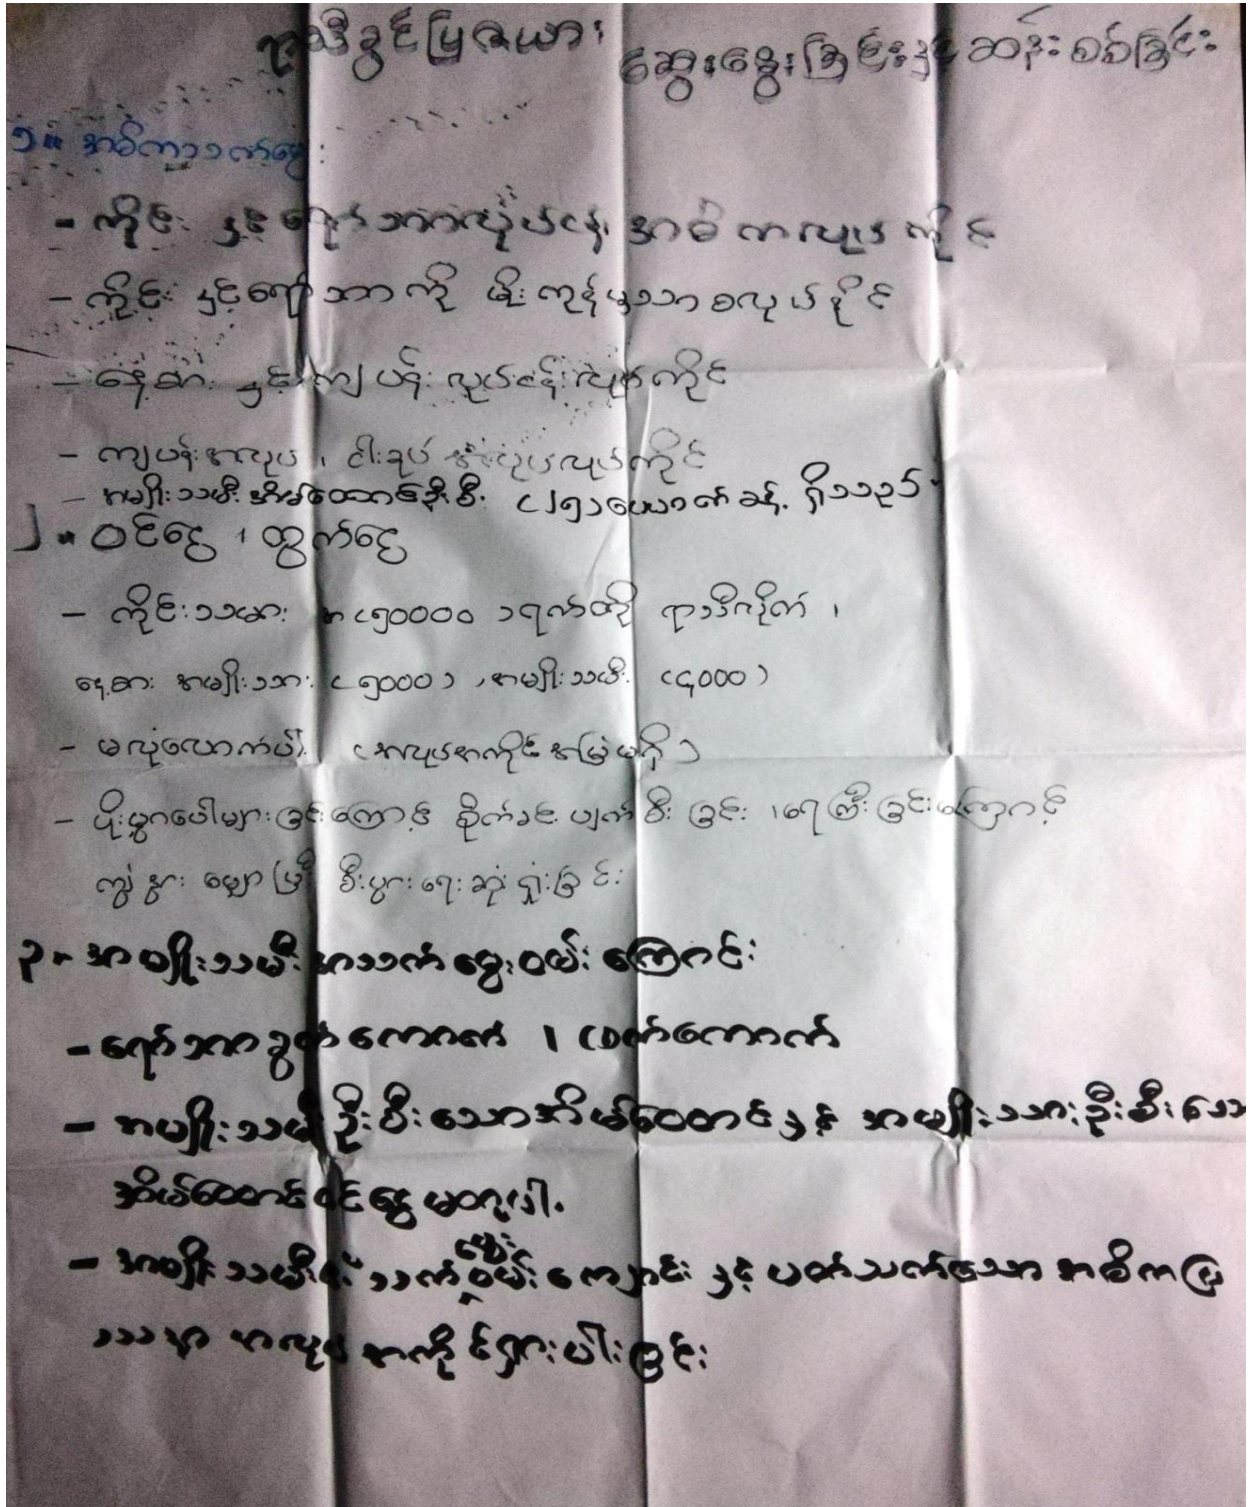 ရာသီခွင်ပြဇယား ဆွေးနွေးခြင်းနှင့် ဆန်းစစ်ခြင်း
၁။ အဓိကသက်မွေး
- ကိုင်း နှင့် ရော်ဘာလုပ်ငန်း အဓိကလုပ်ကိုင်
- ကိုင်း နှင့်ရော်ဘာကို မိုးကုန်မှသာစလုပ်နိုင်
- နေ့စား နှင့် ကျပန်း လုပ်ငန်းလုပ်ကိုင်
- ကျပန်းအလုပ် ၊ ငါးခုပ် အလုပ်လုပ်ကိုင်
- အမျိုးသမီး အိမ်ထောင်ဦးစီး (၂၅) ယောက်ခန့် ရှိသည်
၂။ ဝင်ငွေ ၊ ထွက်ငွေ
- ကိုင်းသမား (၅၀၀၀၀) ရက်တို ရာသီလိုက် ၊
နေ့စား အမျိုးသား (၅၀၀၀) ၊ အမျိုးသမီး (၄၀၀၀)
- မလုံလောက်ပါ (အလုပ်အကိုင်အမြဲမရှိ)
- ပိုးမွှားပေါများခြင်းကြောင့် စိုက်ခင်း ပျက်စီးခြင်း ၊ ရေကြီးခြင်းကြောင့်
ကျွဲနွား မျောပြီး စီးပွားရေးဆုံးရှုံးခြင်း
၃။ အမျိုးသမီးအသက်မွေးဝမ်းကြောင်း
- ရော်ဘာခွက်ကောက် ၊ ဖတ်ကောက်
- အမျိုးသမီးဦးစီးသောအိမ်ထောင်နှင့် အမျိုးသားဦးစီးသော
အိမ်ထောင်ဝင်ငွေမတူပါ.
- အမျိုးသမီး သက်မွေးဝမ်းကျောင်းနှင့် ပတ်သက်သော အဓိကပြ
ဿနာ အလုပ်အကိုင်ရှားပါးခြင်း